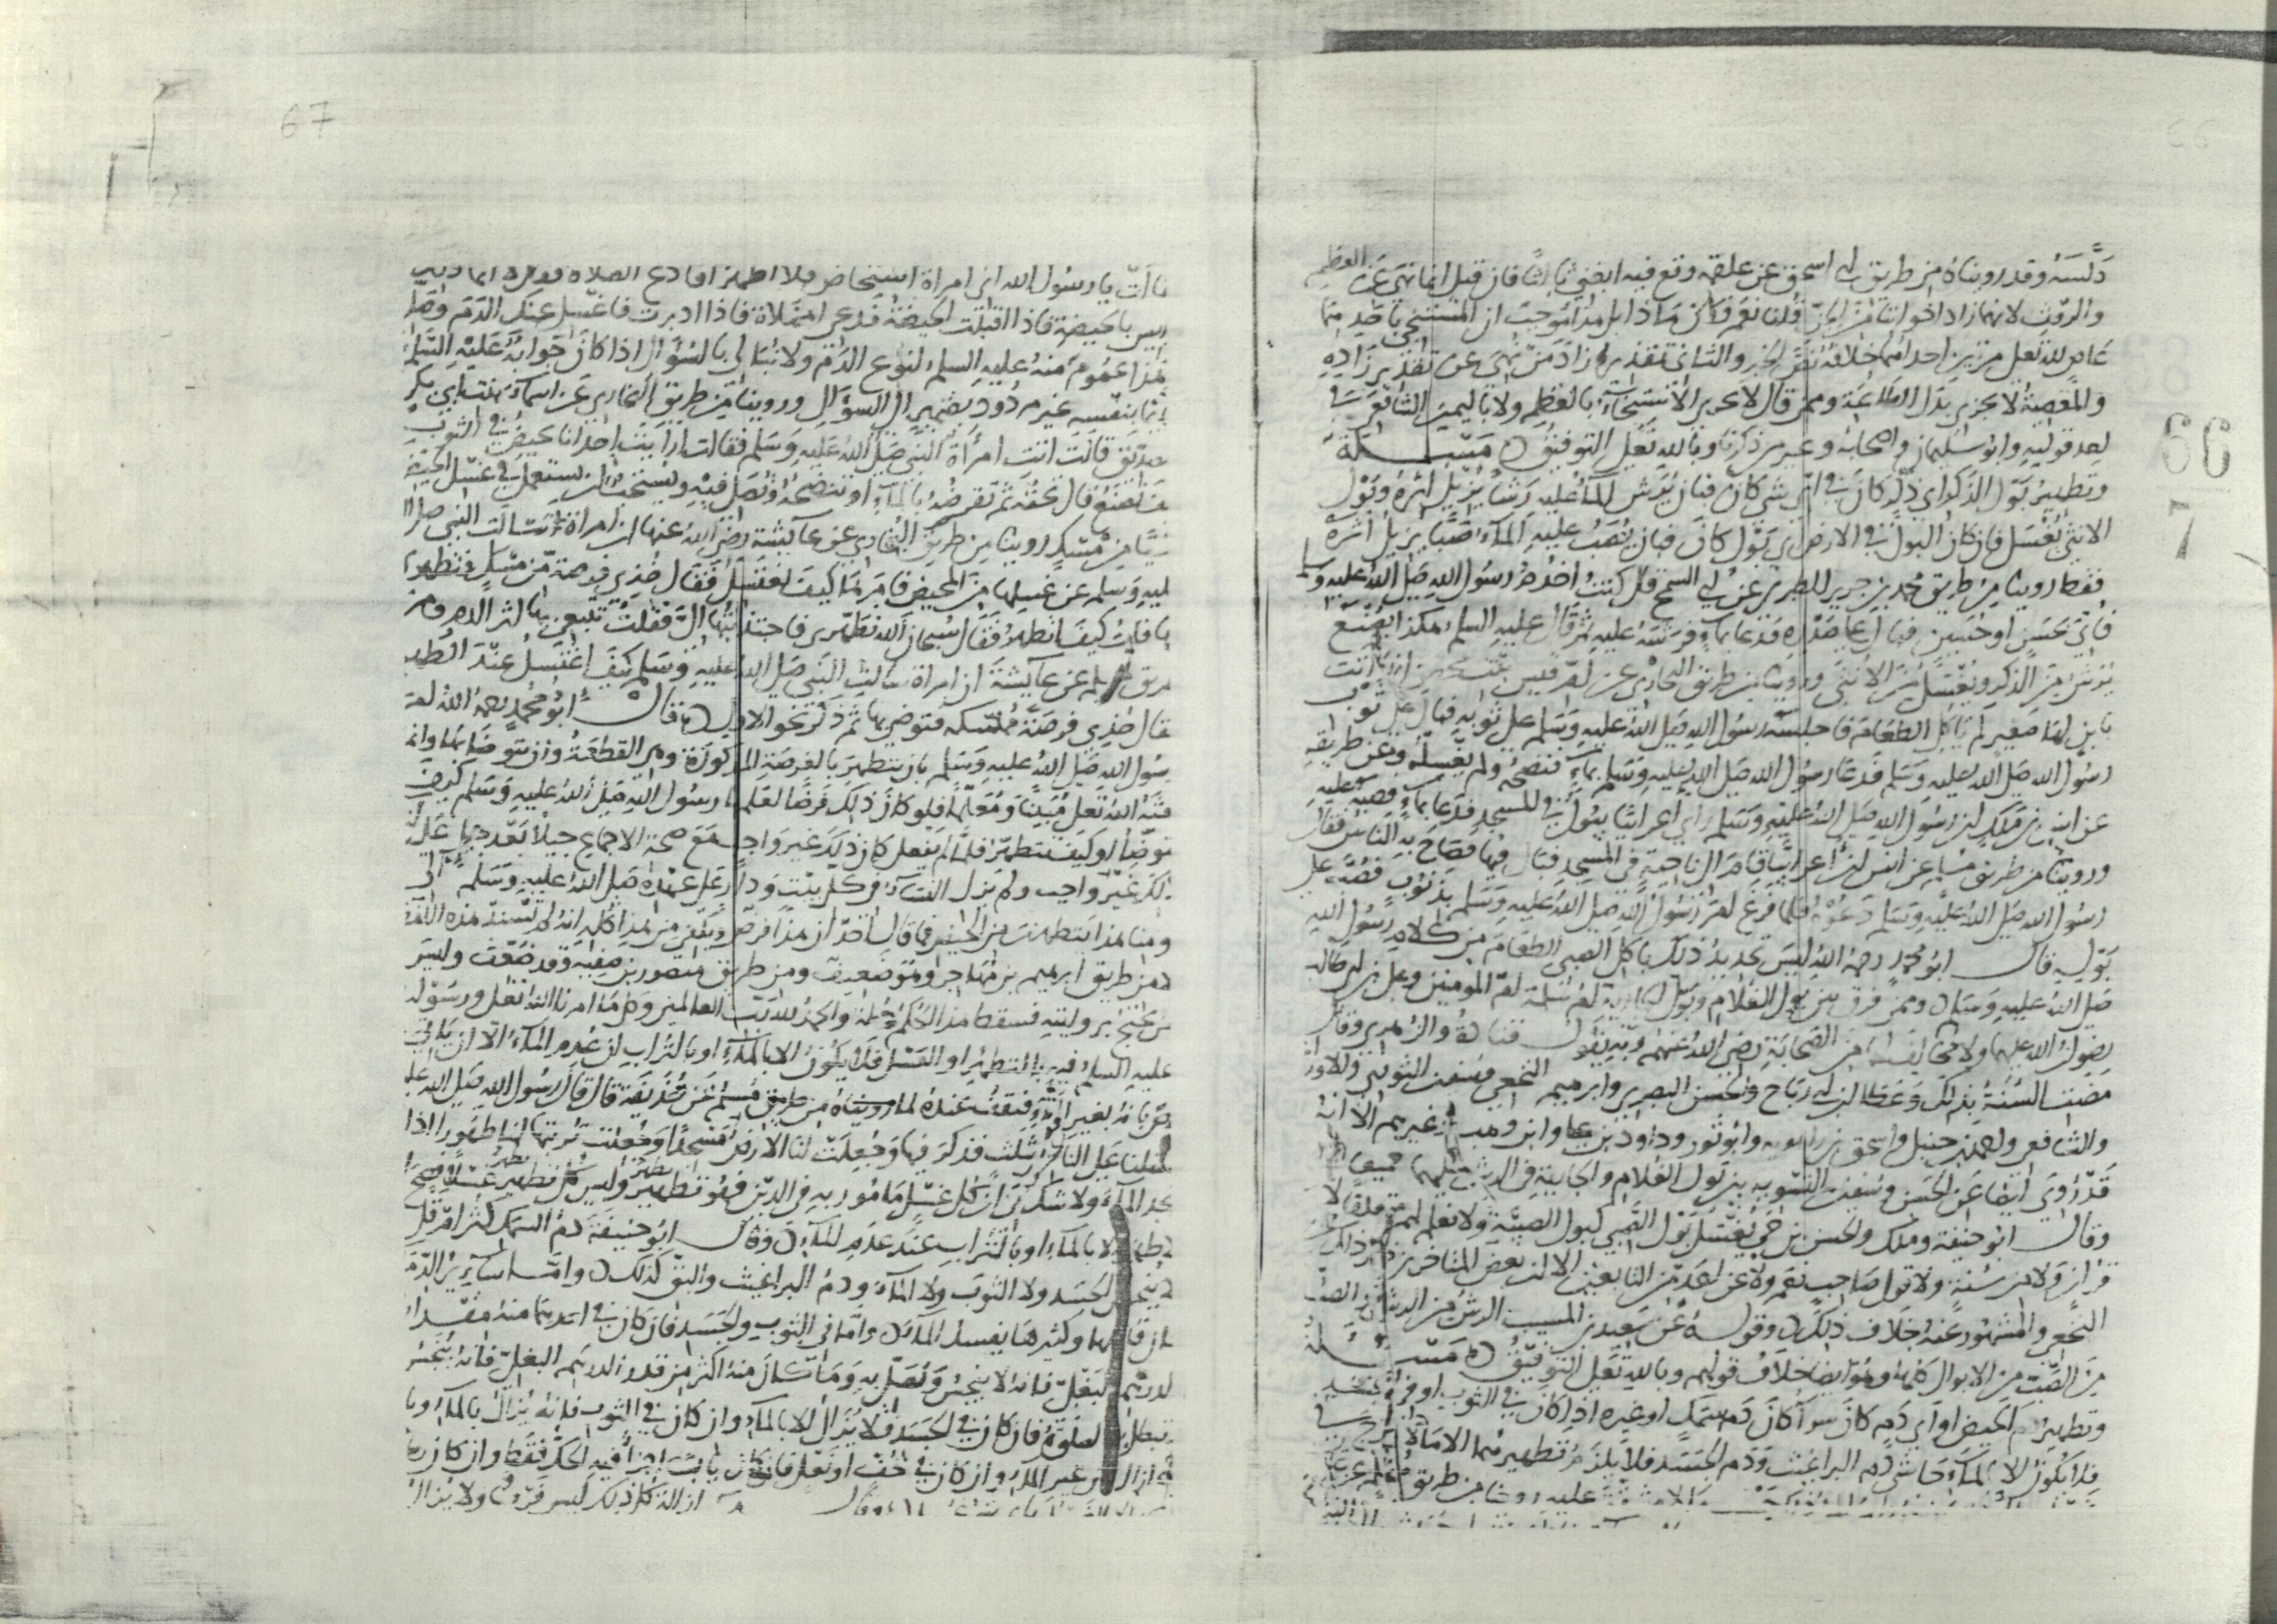 66
7
دلسه وقد رويناه من طريق ابي اسحق عن علقمة وقع فيه ايضني ثالثا فان قيل انما نهى عن العظم
والروث لانهما زاد اخواننا من الجن قلنا نعم فكان ماذا بل هذا موجب ان المستنجي باحدهما
عاص لله تعلى مرتين احداهما خلافه نص الخبر والثاني تقذيره زاد من نهي عن تقذير زاده
والمعصية لا تجزي بدل الطاعة وممن قال لا يجزي الاستنجاء بالعظم ولا باليمين الشافعي في
احد قوليه وابو سليمان واصحابه وغير من ذكرنا وبالله تعلى التوفيق مسئلة
وتطهير بول الذكر اي ذكر كان في اي شي كان فبان يرش الماء عليه رشا يزيل اثره وبول
الانثى يغسل فان كان البول في الارض اي بول كان فبان يصب عليه الماء صبا يزيل اثره
فقط روينا من طريق محمد بن جرير الطبري عن ابي السمح قال كنت اخدم رسول الله صلى الله عليه وسلم
فاتي بحسن او حسين فبال على صدره فدعا بماء فرشه عليه ثم قال عليه السلم هكذا يصنع
يرش من الذكر ويغسل من الانثى وروينا من طريق البخاري عن ام قيس بنت محصن انها اتت
بابن لها صغير لم ياكل الطعام فاجلسه رسول الله صلى الله عليه وسلم على ثوبه فبال على ثوب
رسول الله صلى الله عليه وسلم فدعا رسول الله صلى الله عليه وسلم بماء فنضحه ولم يغسله ومن طريقه
عن انس بن ملك ان رسول الله صلى الله عليه وسلم راي اعرابيا يبول في المسجد فدعا بماء فصبه عليه
وروينا من طريق مسلم عن انس ان اعرابيا قام الى ناحية في المسجد فبال فيها فصاح به الناس فقال
رسول الله صلى الله عليه وسلم دعوه فلما فرغ امر رسول الله صلى الله عليه وسلم بذنوب فصب على
بوله قال ابو محمد رحمه الله ليس تحديد ذلك باكل الصبي الطعام من كلام رسول الله
صلى الله عليه وسلم وممن فرق بين بول الغلام وبول الجارية ام سلمة ام المومنين وعلى بن ابي طالب
رضوان الله عليهما ولا مخالف لهما من الصحابة رضي الله عنهم وبه يقول قتادة والزهري وقال
مضت السنة بذلك وعطا بن ابي رباح والحسن البصري وابرهيم النخعي وسفين الثوري والاوزاعي
والشافعي واحمد بن حنبل واسحق بن راهويه وابو ثور وداود بن علي وابن وهب وغيرهم الا انه
قد روي ايضا عن الحسن وسفين التسوية بين بول الغلام والجارية في الرش عليهما جميعا
وقال ابو حنيفة وملك والحسن بن حي يغسل بول الصبي كبول الصبية ولا نعلم لهم متعلقا لا
من قران ولا من سنة ولا قول صاحب نعم ولا عن احد من التابعين الا ان بعض المتاخرين ذكر ذلك
النخعي والمشهور عنه خلاف ذلك وقوله عن سعيد بن المسيب الرش من الرش والصب
من الصب من الابوال كلها وهو ايضا خلاف قولهم وبالله تعلى التوفيق مسئلة
وتطهير دم الحيض او اي دم كان سوا كان دم سمك او غيره اذا كان في الثوب او في الجسد
فلا يكون الا بالماء حاشى دم البراغيث ودم الجسد فلا يلزم تطهيرهما الا ما لا حرج في
67
قالت يا رسول الله اني امراة استحاض فلا اطهر افادع الصلاة فقال انما ذلك
ليس بالحيضة فاذا اقبلت الحيضة فدعي الصلاة فاذا ادبرت فاغسلي عنك الدم وصلي
هذا عموم منه عليه السلم لنوع الدم ولا نبالي بالسؤال اذا كان جوابه عليه السلم
قائما بنفسه غير مردود بضمير الى السؤال وروينا من طريق البخاري عن اسماء بنت ابي بكر
الصديق قالت اتت امراة النبي صلى الله عليه وسلم فقالت ارايت احدانا تحيض في الثوب
كيف تصنع قال تحته ثم تقرصه بالماء او تنضحه وتصلي فيه ويستحب ان تستعمل في غسل الحيضة
شيا من مسك روينا من طريق البخاري عن عايشة رضي الله عنها ان امراة سالت النبي صلى الله
عليه وسلم عن غسلها من المحيض فامرها كيف تغتسل فقال خذي فرصة من مسك فتطهري
بها قالت كيف اتطهر فقال سبحان الله تطهري فاجتذبتها الى فقلت تتبعي بها اثر الدم ومن
طريق مسلم عن عايشة ان امراة سالت النبي صلى الله عليه وسلم كيف اغتسل عند الطهر
فقال خذي فرصة ممسكة فتوضي بها ثم ذكر نحو الاول قال ابو محمد رحمه الله لم
رسول الله صلى الله عليه وسلم بان تتطهر بالفرصة المذكورة وهي القطعة وان تتوضا بها وانما
بعثه الله تعلى مبينا ومعلما فلو كان ذلك فرضا لعلمها رسول الله صلى الله عليه وسلم كيف
تتوضا او كيف تتطهر فلما لم يفعل كان ذلك غير واجب مع صحة الاجماع جيلا بعد جيل على ان
ذلك غير واجب ولم تزل النساء في كل بيت ودار على عهده صلى الله عليه وسلم الى
يومنا هذا يتطهرن من الحيض فما قال احد ان هذا فرض ويكفي من هذا كله انه لم تسند هذه اللفظة
الا من طريق ابرهيم بن مهاجر وهو ضعيف ومن طريق منصور بن صفية وقد ضعف وليس
من يحتج بروايته فسقط هذا الحكم جملة والحمد لله رب العالمين وكل ما امرنا الله تعلى ورسوله
عليه السلم فيه بالتطهير او الغسل فلا يكون الا بالماء او بالتراب ان عدم الماء الا ان ياتي
نص بانه بغير الماء فنقف عنده لما رويناه من طريق مسلم عن حذيفة قال قال رسول الله صلى الله عليه
فضلنا على الناس بثلث فذكر فيها وجعلت لنا الارض مسجدا وجعلت تربتها لنا طهورا اذا
لم نجد الماء ولا شك في ان كل غسل مامور به في الدين فهو تطهير وليس كل تطهير غسلا
تطهير الا بالماء او بالتراب عند عدم الماء وقال ابو حنيفة دم السمك كثر ام قل
لا ينجس الجسد ولا الثوب ولا الماء ودم البراغيث والبق كذلك واما سائر الدما
فان قليلها وكثيرها يفسد الماء واما في الثوب والجسد فان كان في احدهما منه مقدار
الدرهم البغلي فانه لا ينجس ويصلى به وما كان منه اكثر من قدر الدرهم البغلي فانه ينجس
وتبطل به الصلوة فان كان في الجسد فلا يزال الا بالماء وان كان في الثوب فانه يزال بالماء وبا